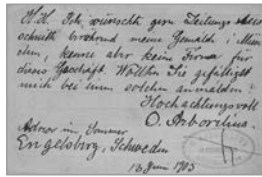 H.H. Ich wünschte gern Zeitungs
schnitt berührend meine Gemälde in Mün
chen, kenne aber keine Firma für
dieses Geschäft. Wollten Sie gefälligst
mich bei einem solchen anmelden?
Hochachtungsvoll
O. Arborelius.
Adress im Sommer
Engelsberg, Schweden
13 Juni 1903